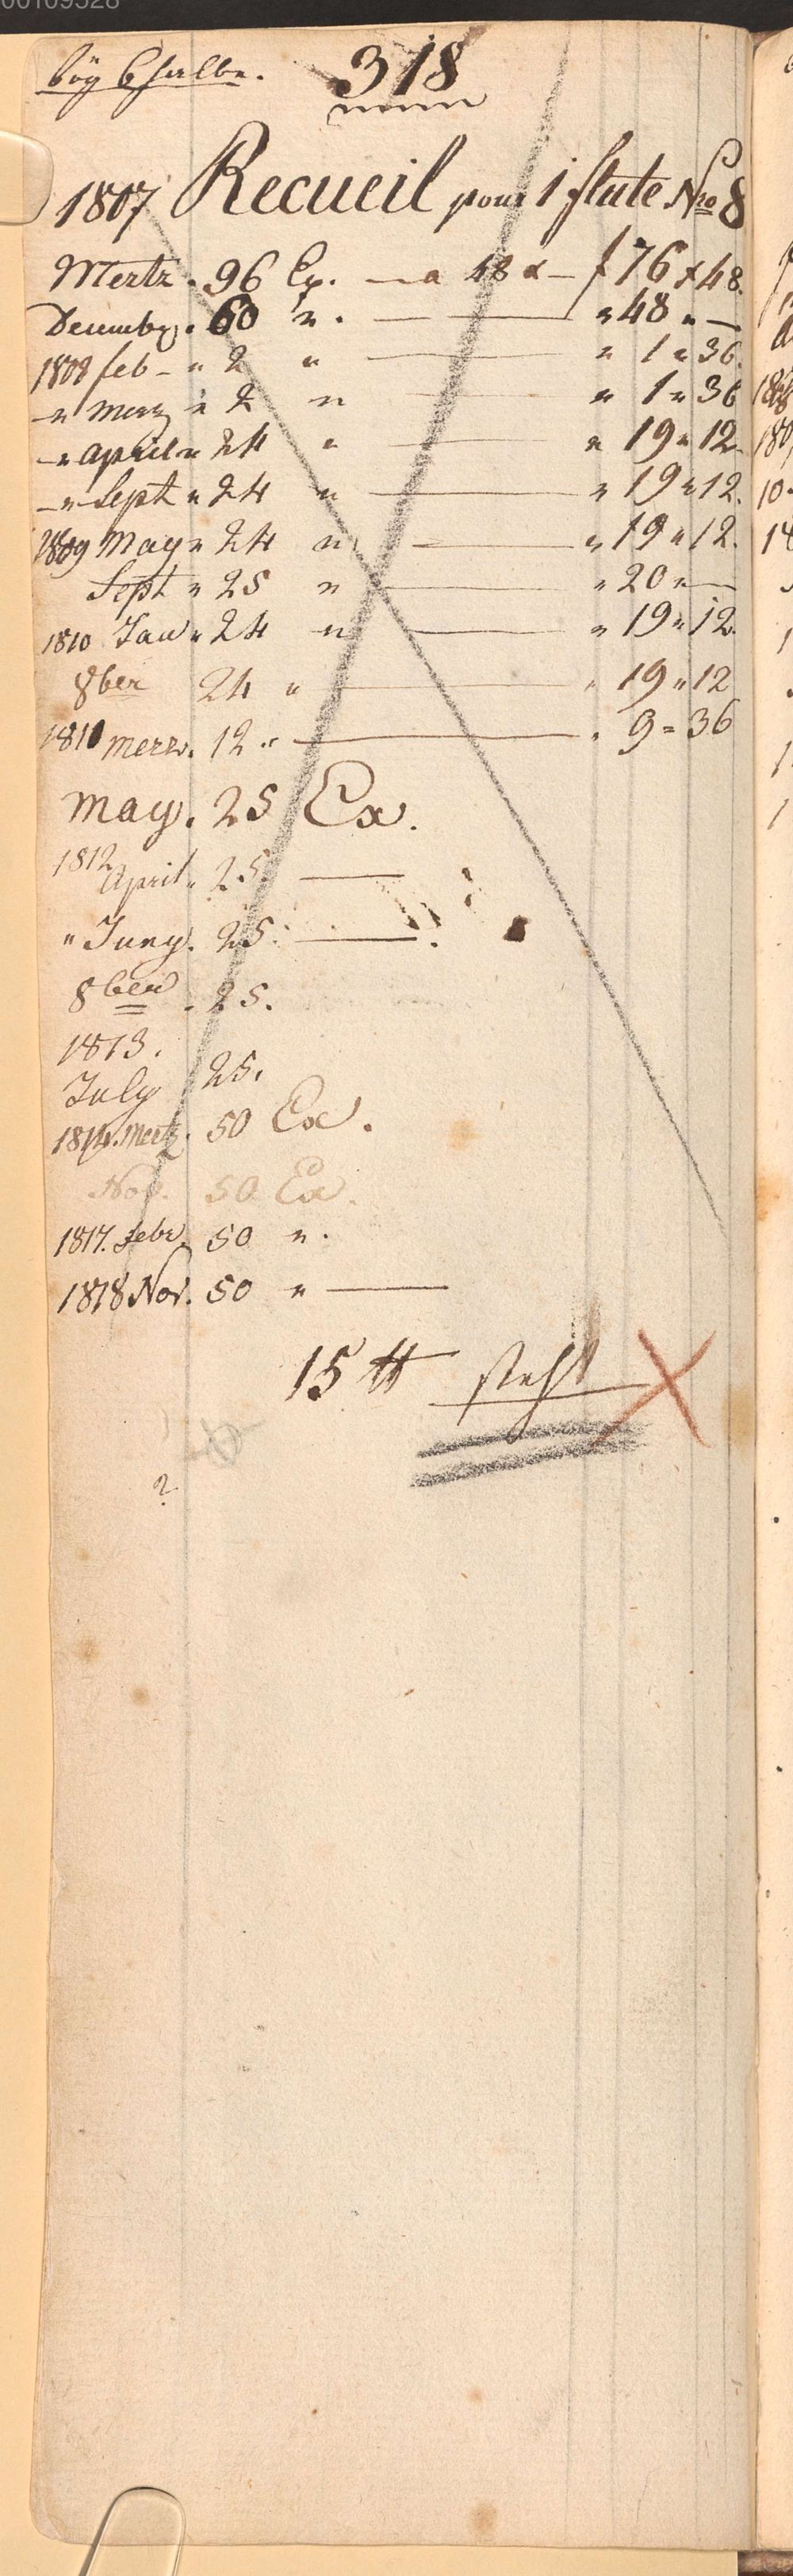 bög 6 halbe. 318
1807 Recueil pour 1 flute Nro 8
Mertz . 96 Ex. — a 48 x — f 76 x 48.
Decembr. . 60 " . — " 48 " —
1808 feb - " 2 " — " 1 " 36.
— " Merz " 2 " — " 1 " 36
— " April " 24 " — " 19 " 12
— " Sept " 24 " — " 19 " 12.
1809 May " 24 " — " 19 " 12.
Sept " 25 " — " 20 " —
1810 Jan " 24 " — " 19 " 12.
8ber 24 " — " 19 " 12
1811 Merz. 12 " — " 9 = 36
May. 25 Ex.
1812 April " 25. —
" Juny. 25. — .
8ber . 25.
1813.
July 25.
1814. Mertz. 50 Ex.
Nov. 50 Ex.
1817. Febr. 50 " .
1818 Nov. 50 " —
15 ℔ steht
2.